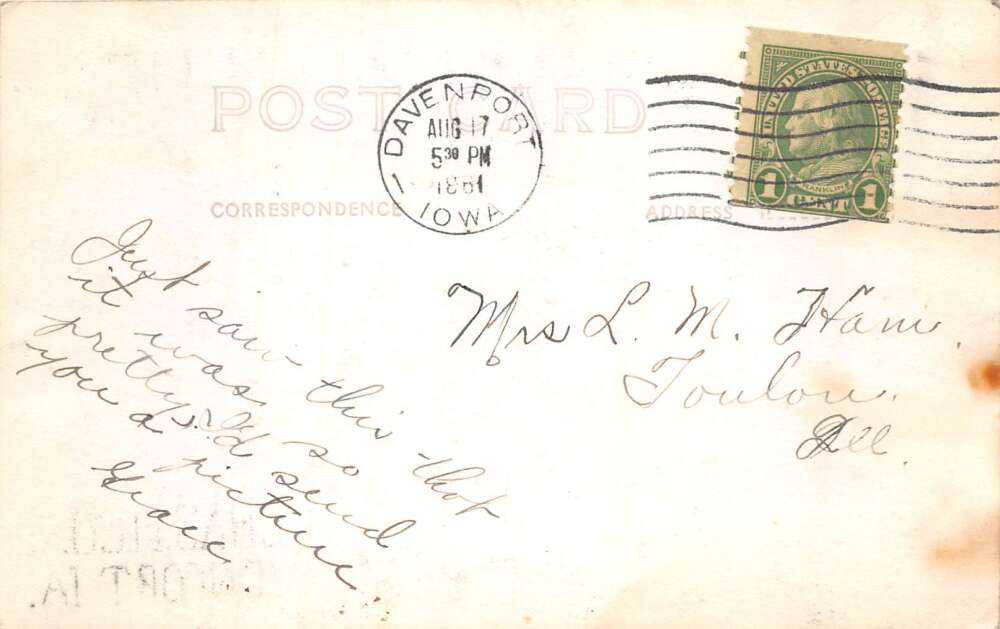 POST CARD
DAVENPORT
AUG 17
5 30 PM
1931
IOWA
UNITED STATES POSTAGE
FRANKLIN
1 CENT 1
CORRESPONDENCE
ADDRESS
Just saw this that
it was so
pretty I'd send
you a picture.
Grace.
Mrs L. M. Ham.
Toulon.
Ill.